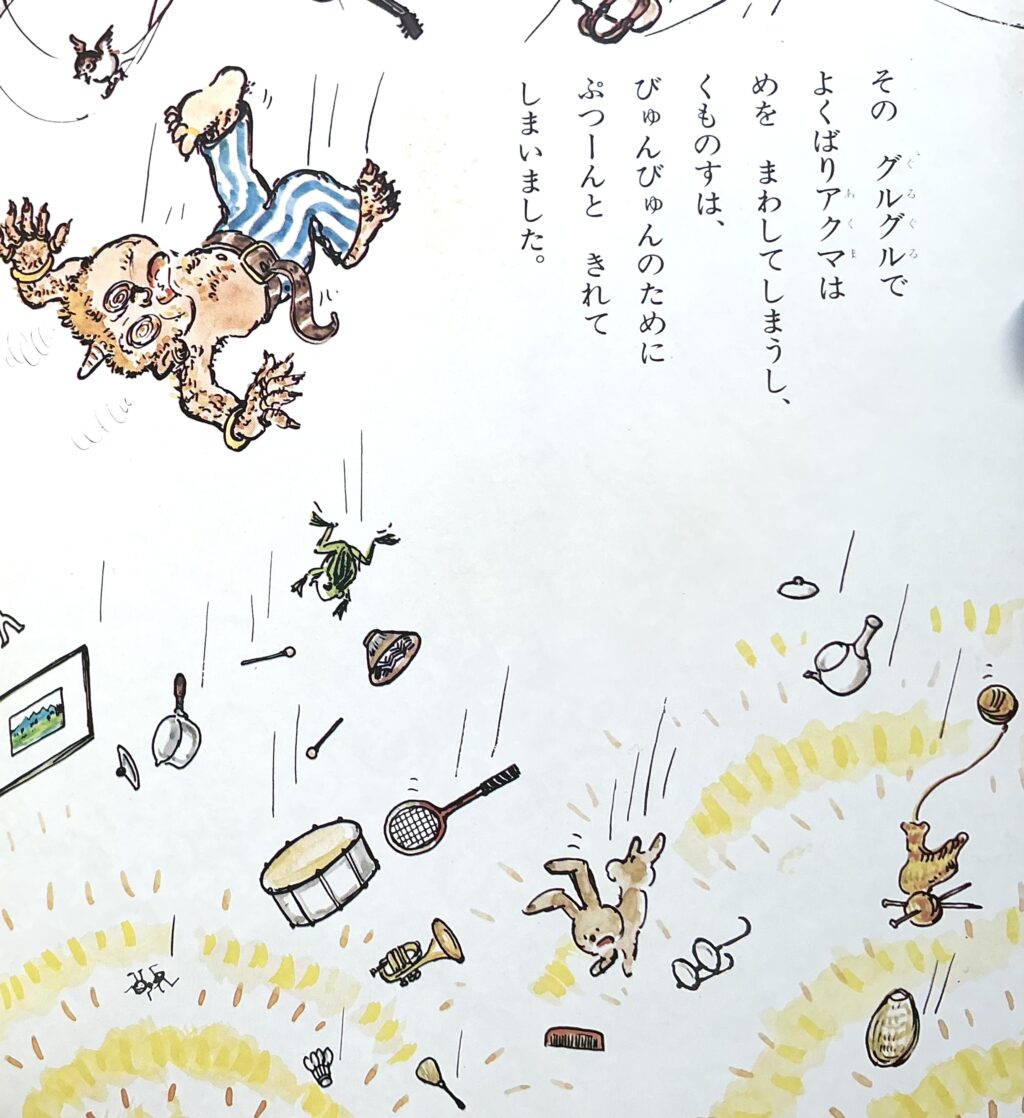 その　グルグルで
よくばりアクマは
めを　まわしてしまうし、
くものすは、
びゅんびゅんのために
ぷつーんと　きれて
しまいました。